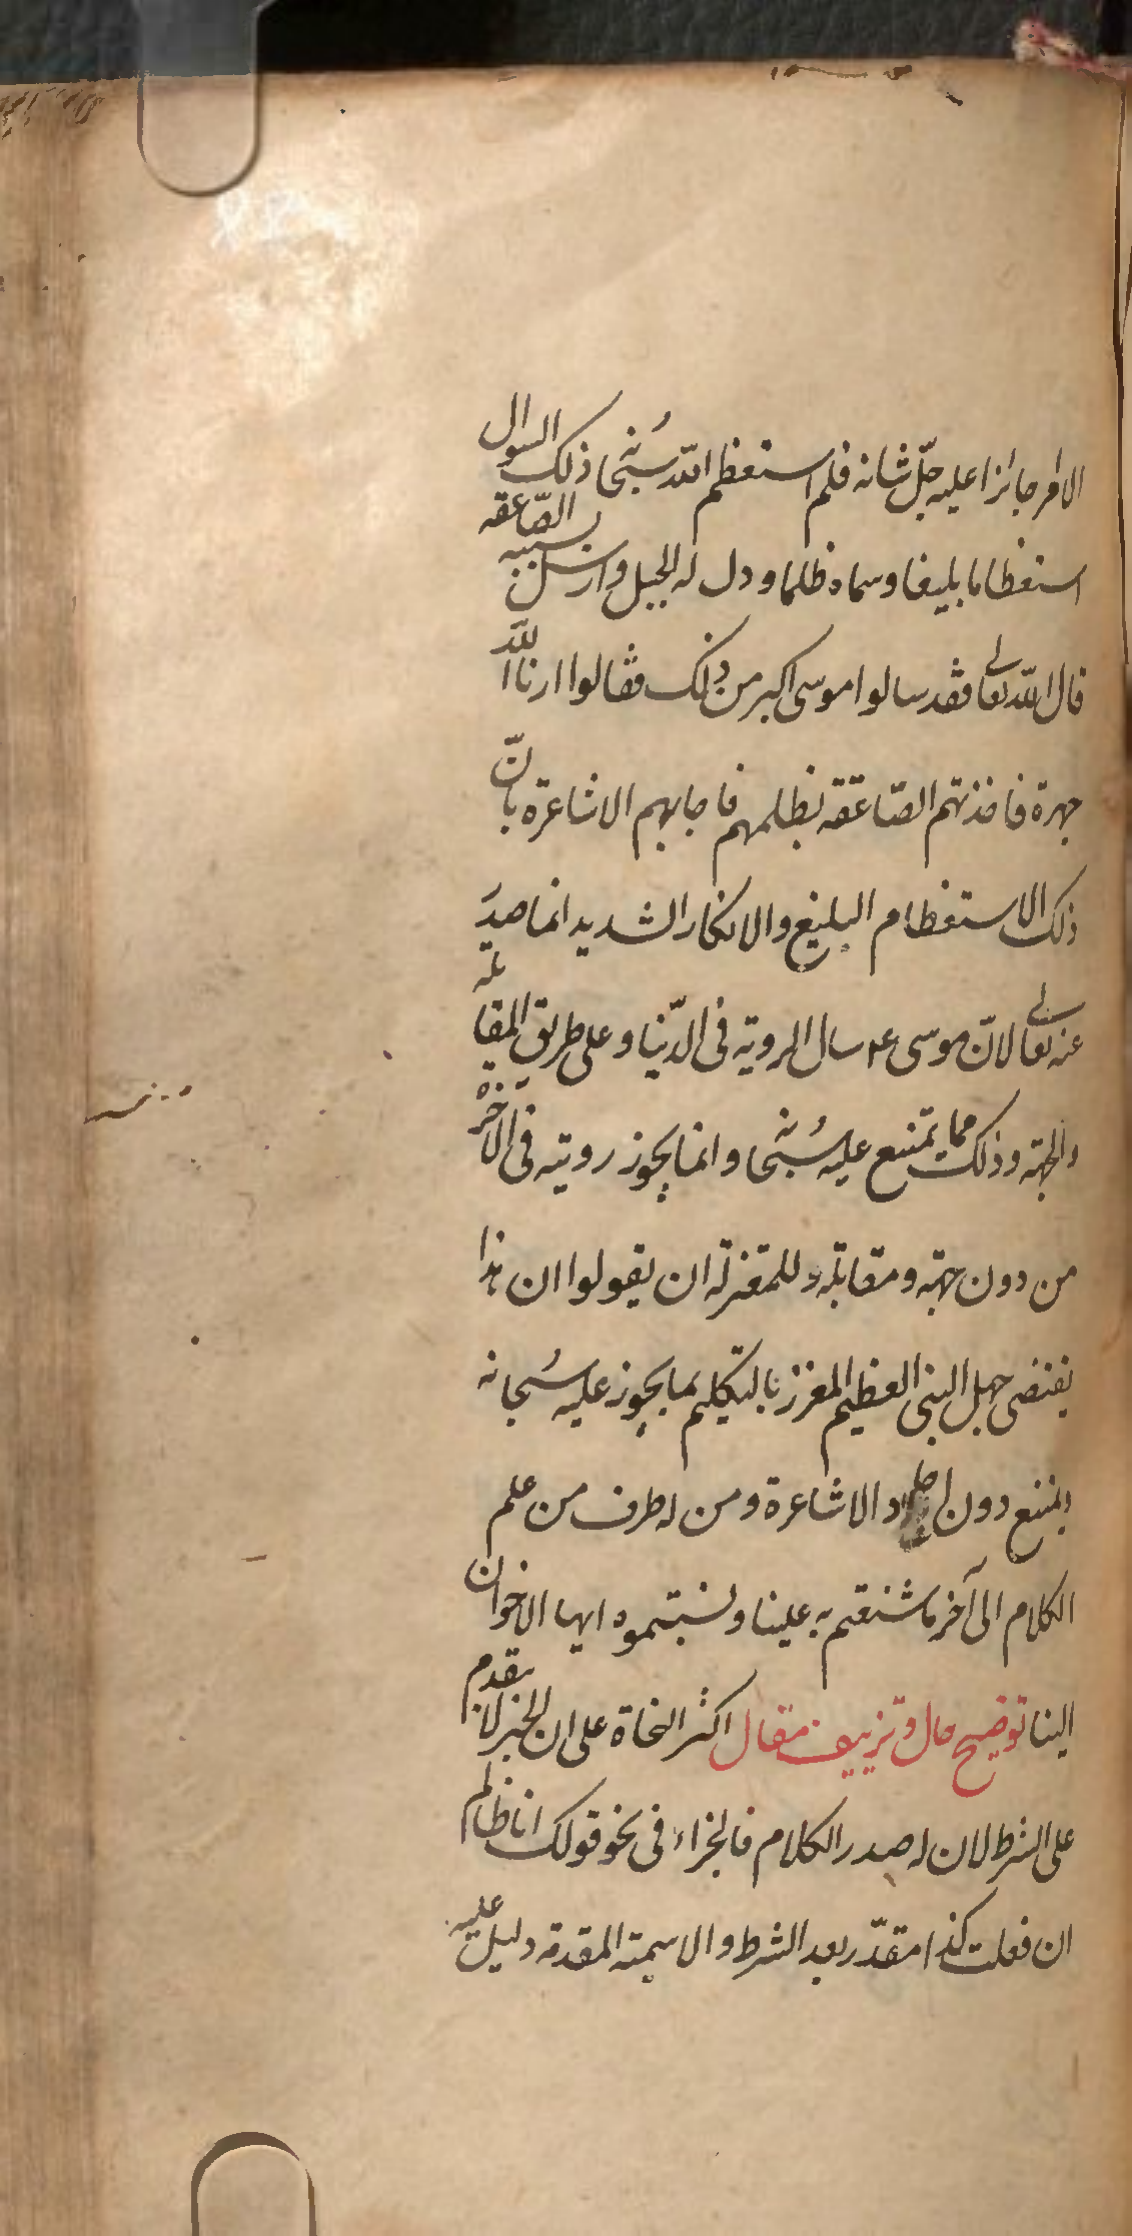 الامر جائزا عليه جلّ شانه فلم استعظم الله سُبحانه ذلك السوال
استعظاما بليغا وسماه ظلما ودل له الجبل وارسل بسببه الصّاعقه
قال الله تعالى فقد سالوا موسى اكبر من ذلك فقالوا ارنا الله
جهرة فاخذتهم الصّاعقه بظلمهم فاجابهم الاشاعرة بانّ
ذلك الاستعظام البليغ والانكار الشديد انما صدر
عنه تعالى لانّ موسى ع سال الروية فى الدّنيا وعلى طريق المقابلة
والجهة وذلك مما يمتنع عليه سُبحانه وانما يجوز رويته فى الآخرة
من دون جهة ومقابلة وللمعتزلة ان يقولوا ان هذا
يقتضى جهل النبى العظيم المعزز بالتكليم بما يجوز عليه سُبحانه
ويمتنع دون الاشاعرة ومن له طرف من علم
الكلام الى آخر ما شنعتم به علينا ونسبتموه ايها الاخوان
الينا توضيح حال وتزييف مقال اكثر النحاة على ان الجزاء لا يتقدم
على الشرط لان له صدر الكلام فالجزاء فى نحو قولك انا ظالم
ان فعلت كذا مقدّر بعد الشرط والاسمية المقدمة دليل عليه